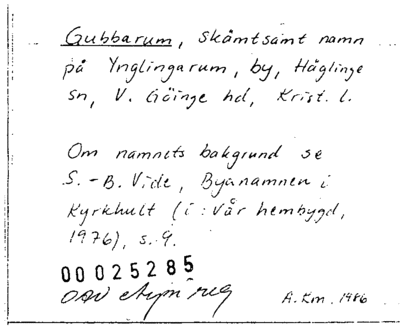 Gubbarum, skämtsamt namn
på Ynglingarum, by, Häglinge
sn, V. Göinge hd, Krist. l.
Om namnets bakgrund se
S.-B. Vide, Byanamnen i
Kyrkhult (i: Vår hembygd,
1976), s. 9.
00025285
A.Km. 1986